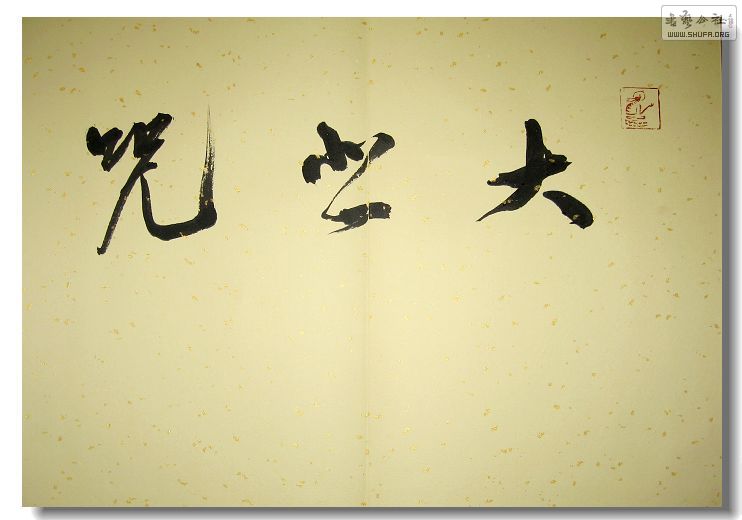 大悲咒
書藝公社
WWW.SHUFA.ORG